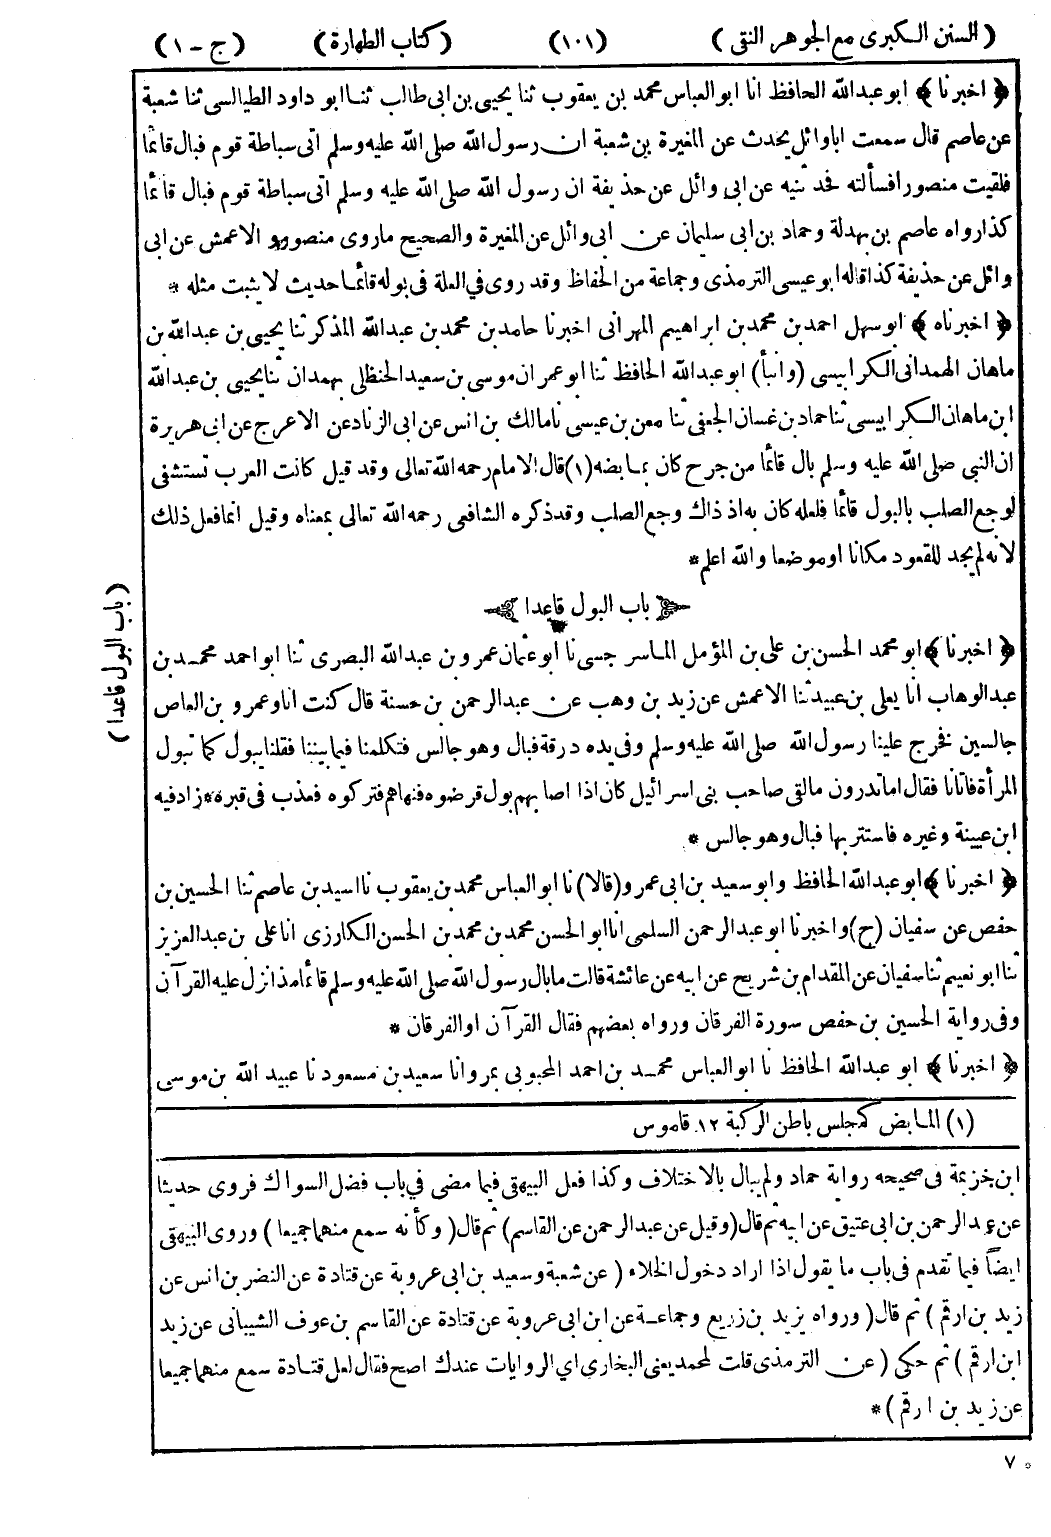 (السنن الكبرى مع الجوهر النقى) (١٠١) (كتاب الطهارة) (ج - ١)
﴿ اخبرنا ﴾ ابو عبدالله الحافظ انا ابو العباس محمد بن يعقوب ثنا يحيى بن ابى طالب ثنا ابو داود الطيالسى ثنا شعبة
عن عاصم قال سمعت ابا وائل يحدث عن المغيرة بن شعبة ان رسول الله صلى الله عليه وسلم اتى سباطة قوم فبال قائما
فلقيت منصورا فسألته فحدثنيه عن ابى وائل عن حذيفة ان رسول الله صلى الله عليه وسلم اتى سباطة قوم فبال قائما
كذا رواه عاصم بن بهدلة وحماد بن ابى سليمان عن ابى وائل عن المغيرة والصحيح ما روى منصور و الاعمش عن ابى
وائل عن حذيفة كذا قاله ابو عيسى الترمذى وجماعة من الحفاظ وقد روى في العلة فى بوله قائما حديث لا يثبت مثله *
﴿ اخبرناه ﴾ ابو سهل احمد بن محمد بن ابراهيم المهرانى اخبرنا حامد بن محمد بن عبدالله المذكر ثنا يحيى بن عبدالله بن
ماهان الهمدانى الكرابيسى (وانبأ) ابو عبدالله الحافظ ثنا ابو عمران موسى بن سعيد الحنظلى بهمدان ثنا يحيى بن عبدالله
ابن ماهان الكرابيسى ثنا حماد بن غسان الجعفى ثنا معن بن عيسى نا مالك بن انس عن ابى الزناد عن الاعرج عن ابى هريرة
ان النبى صلى الله عليه وسلم بال قائما من جرح كان بمابضه(١) قال الامام رحمه الله تعالى وقد قيل كانت العرب تستشفى
لوجع الصلب بالبول قائما فلعله كان به اذ ذاك وجع الصلب وقد ذكره الشافعى رحمه الله تعالى بمعناه وقيل انما فعل ذلك
لانه لم يجد للقعود مكانا او موضعا والله اعلم *
باب البول قاعدا
(باب البول قاعدا)
﴿ اخبرنا ﴾ ابو محمد الحسن بن على بن المؤمل الماسرجسى نا ابو عثمان عمرو بن عبدالله البصرى ثنا ابو احمد محمد بن
عبدالوهاب انا يعلى بن عبيد ثنا الاعمش عن زيد بن وهب عن عبدالرحمن بن حسنة قال كنت انا وعمرو بن العاص
جالسين فخرج علينا رسول الله صلى الله عليه وسلم وفى يده درقة فبال وهو جالس فتكلمنا فيما بيننا فقلنا يبول كما تبول
المرأة فاتانا فقال اما تدرون ما لقى صاحب بنى اسرائيل كان اذا اصابهم بول قرضوه فنهاهم فتركوه فعذب فى قبره * زاد فيه
ابن عيينة وغيره فاستتر بها فبال وهو جالس *
﴿ اخبرنا ﴾ ابو عبدالله الحافظ وابو سعيد بن ابى عمرو (قالا) نا ابو العباس محمد بن يعقوب نا اسيد بن عاصم ثنا الحسين بن
حفص عن سفيان (ح) واخبرنا ابو عبدالرحمن السلمى انا ابو الحسن محمد بن محمد بن الحسن الكارزى انا على بن عبدالعزيز
ثنا ابو نعيم ثنا سفيان عن المقدام بن شريح عن ابيه عن عائشة قالت ما بال رسول الله صلى الله عليه وسلم قائما مذ انزل عليه القرآن
وفى رواية الحسين بن حفص سورة الفرقان ورواه بعضهم فقال القرآن او الفرقان *
﴿ اخبرنا ﴾ ابو عبدالله الحافظ نا ابو العباس محمد بن احمد المحبوبى بمرو انا سعيد بن مسعود نا عبيد الله بن موسى
(١) المابض كمجلس باطن الركبة ١٢ قاموس
ابن خزيمة فى صحيحه رواية حماد ولم يبال بالاختلاف وكذا فعل البيهقى فيما مضى في باب فضل السواك فروى حديثا
عن عبد الرحمن بن ابى عتيق عن ابيه ثم قال (وقيل عن عبد الرحمن عن القاسم) ثم قال (وكأنه سمع منهما جميعا) وروى البيهقى
ايضاً فيما تقدم فى باب ما يقول اذا اراد دخول الخلاء (عن شعبة وسعيد بن ابى عروبة عن قتادة عن النضر بن انس عن
زيد بن ارقم) ثم قال (ورواه يزيد بن زريع وجماعة عن ابن ابى عروبة عن قتادة عن القاسم بن عوف الشيبانى عن زيد
ابن ارقم) ثم حكى (عن الترمذى قلت لمحمد يعنى البخارى اي الروايات عندك اصح فقال لعل قتادة سمع منهما جميعا
عن زيد بن ارقم) *
٧